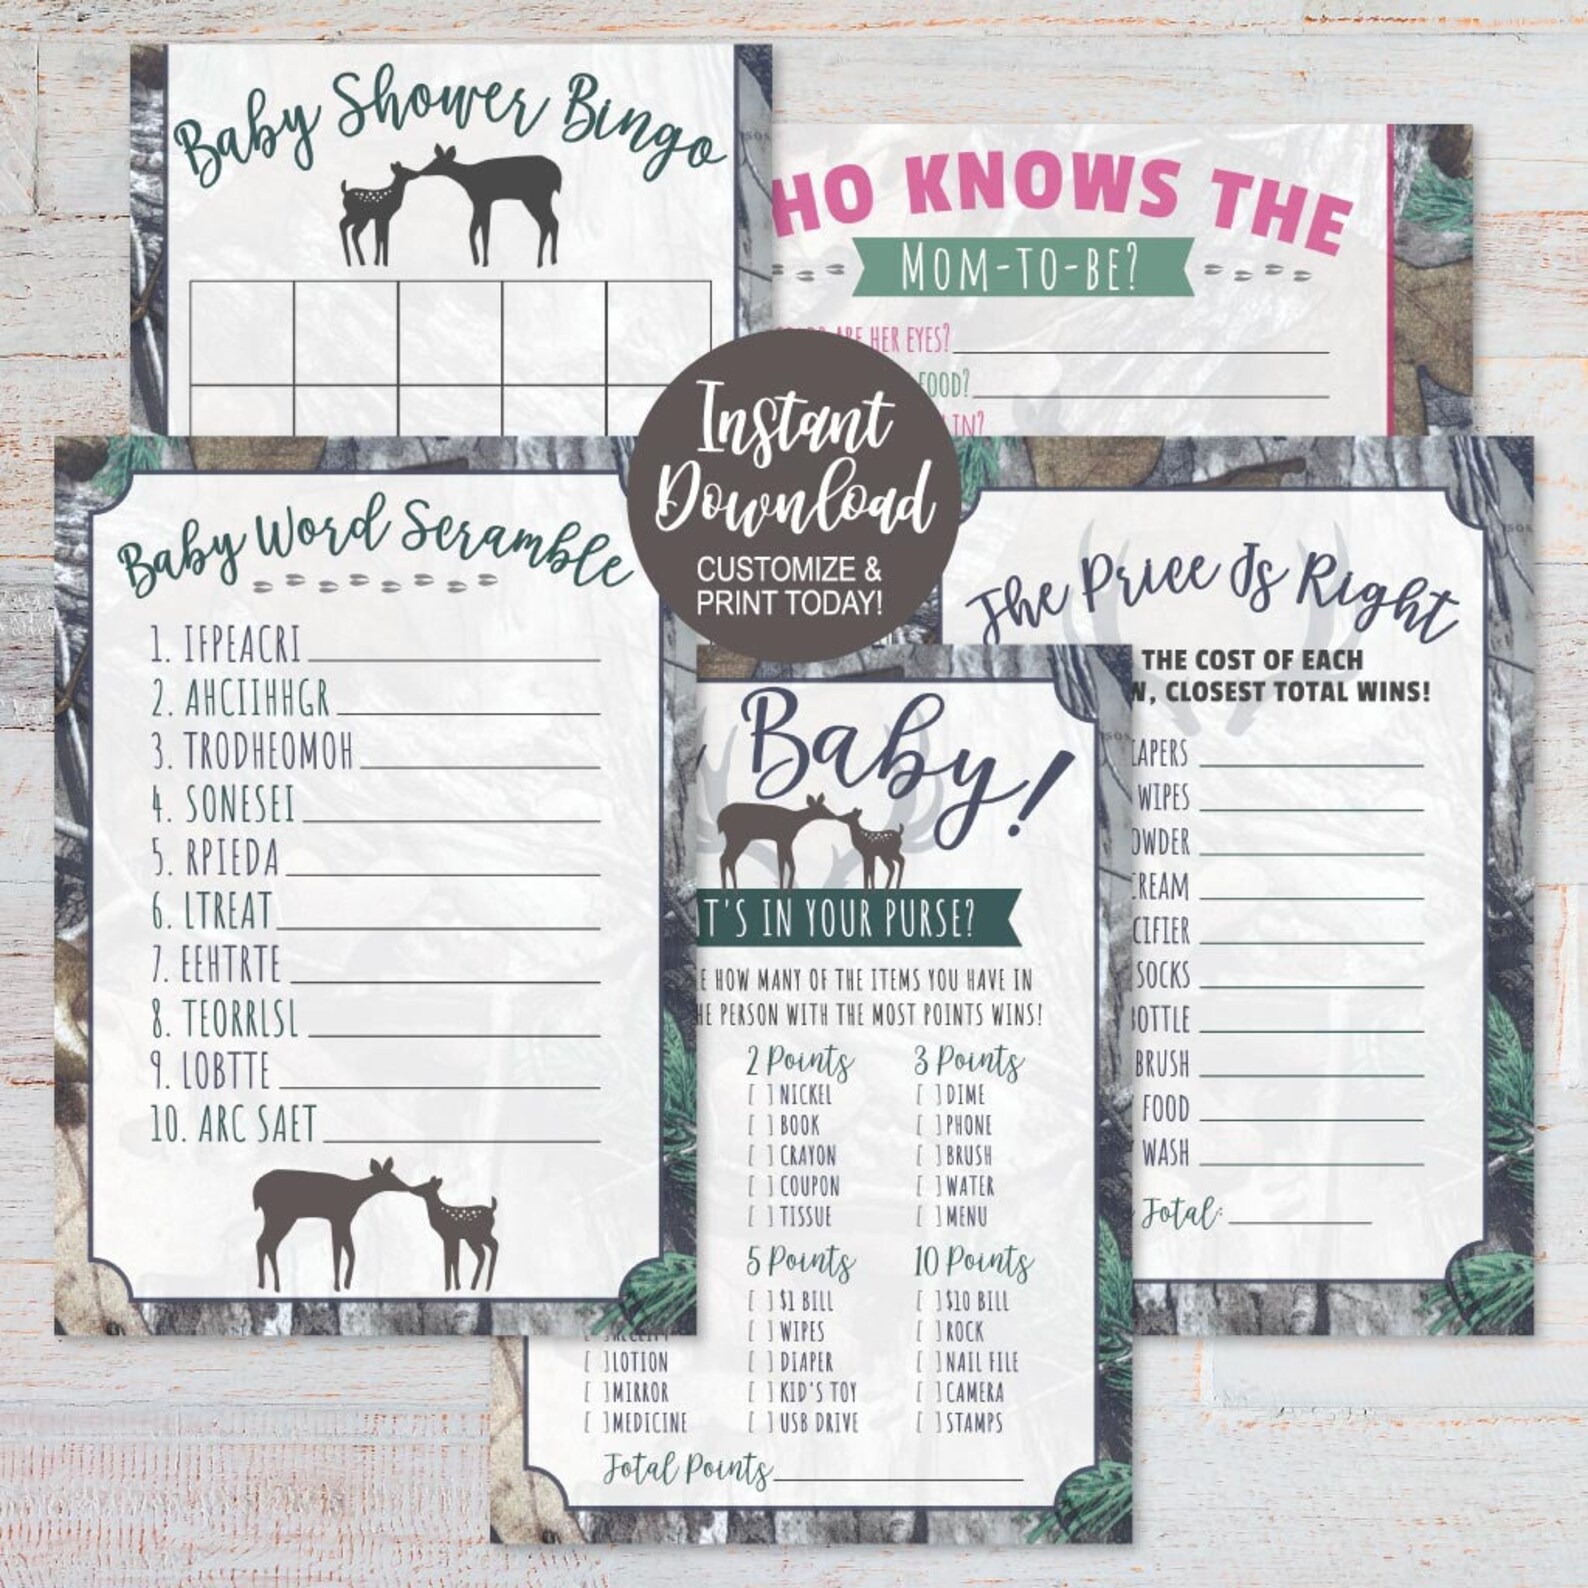 Baby Shower Bingo
HO KNOWS THE
MOM-TO-BE?
ARE HER EYES?
FOOD?
IN?
Instant
Download
CUSTOMIZE &
PRINT TODAY!
Baby Word Scramble
1. IFPEACRI
2. AHCIIHHGR
3. TRODHEOMOH
4. SONESEI
5. RPIEDA
6. LTREAT
7. EEHTRTE
8. TEORRLSL
9. LOBTTE
10. ARC SAET
The Price Is Right
THE COST OF EACH
W, CLOSEST TOTAL WINS!
IAPERS
WIPES
OWDER
CREAM
CIFIER
SOCKS
BOTTLE
BRUSH
FOOD
WASH
Total:
Baby!
T'S IN YOUR PURSE?
E HOW MANY OF THE ITEMS YOU HAVE IN
HE PERSON WITH THE MOST POINTS WINS!
2 Points
[ ] NICKEL
[ ] BOOK
[ ] CRAYON
[ ] COUPON
[ ] TISSUE
3 Points
[ ] DIME
[ ] PHONE
[ ] BRUSH
[ ] WATER
[ ] MENU
[ ] LOTION
[ ] MIRROR
[ ] MEDICINE
5 Points
[ ] $1 BILL
[ ] WIPES
[ ] DIAPER
[ ] KID'S TOY
[ ] USB DRIVE
10 Points
[ ] $10 BILL
[ ] ROCK
[ ] NAIL FILE
[ ] CAMERA
[ ] STAMPS
Total Points